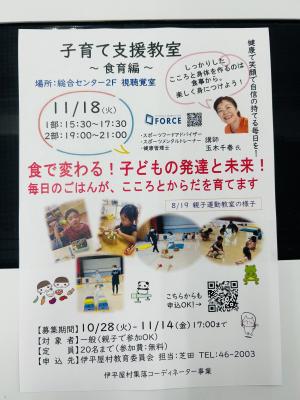 子育て支援教室
～ 食育編 ～
場所：総合センター2F 視聴覚室
11/18(火)
1部：15:30-17:30
2部：19:00-21:00
FORCE
・スポーツフードアドバイザー
・スポーツメンタルトレーナー
・健康管理士
しっかりした
こころと身体を作るのは
食事から。
楽しく身につけよう！
健康で笑顔で自信の持てる毎日を！
講師
玉木千春 氏
食で変わる！子どもの発達と未来！
毎日のごはんが、こころとからだを育てます
8/19 親子運動教室の様子
こちらからも
申込OK！→
【募集期間】10/28(火)-11/14(金)17:00まで
【対象者】一般(親子で参加OK)
【定員】20名まで(参加費：無料)
【申込先】伊平屋村教育委員会 担当：芝田 TEL：46-2003
伊平屋村集落コーディネーター事業